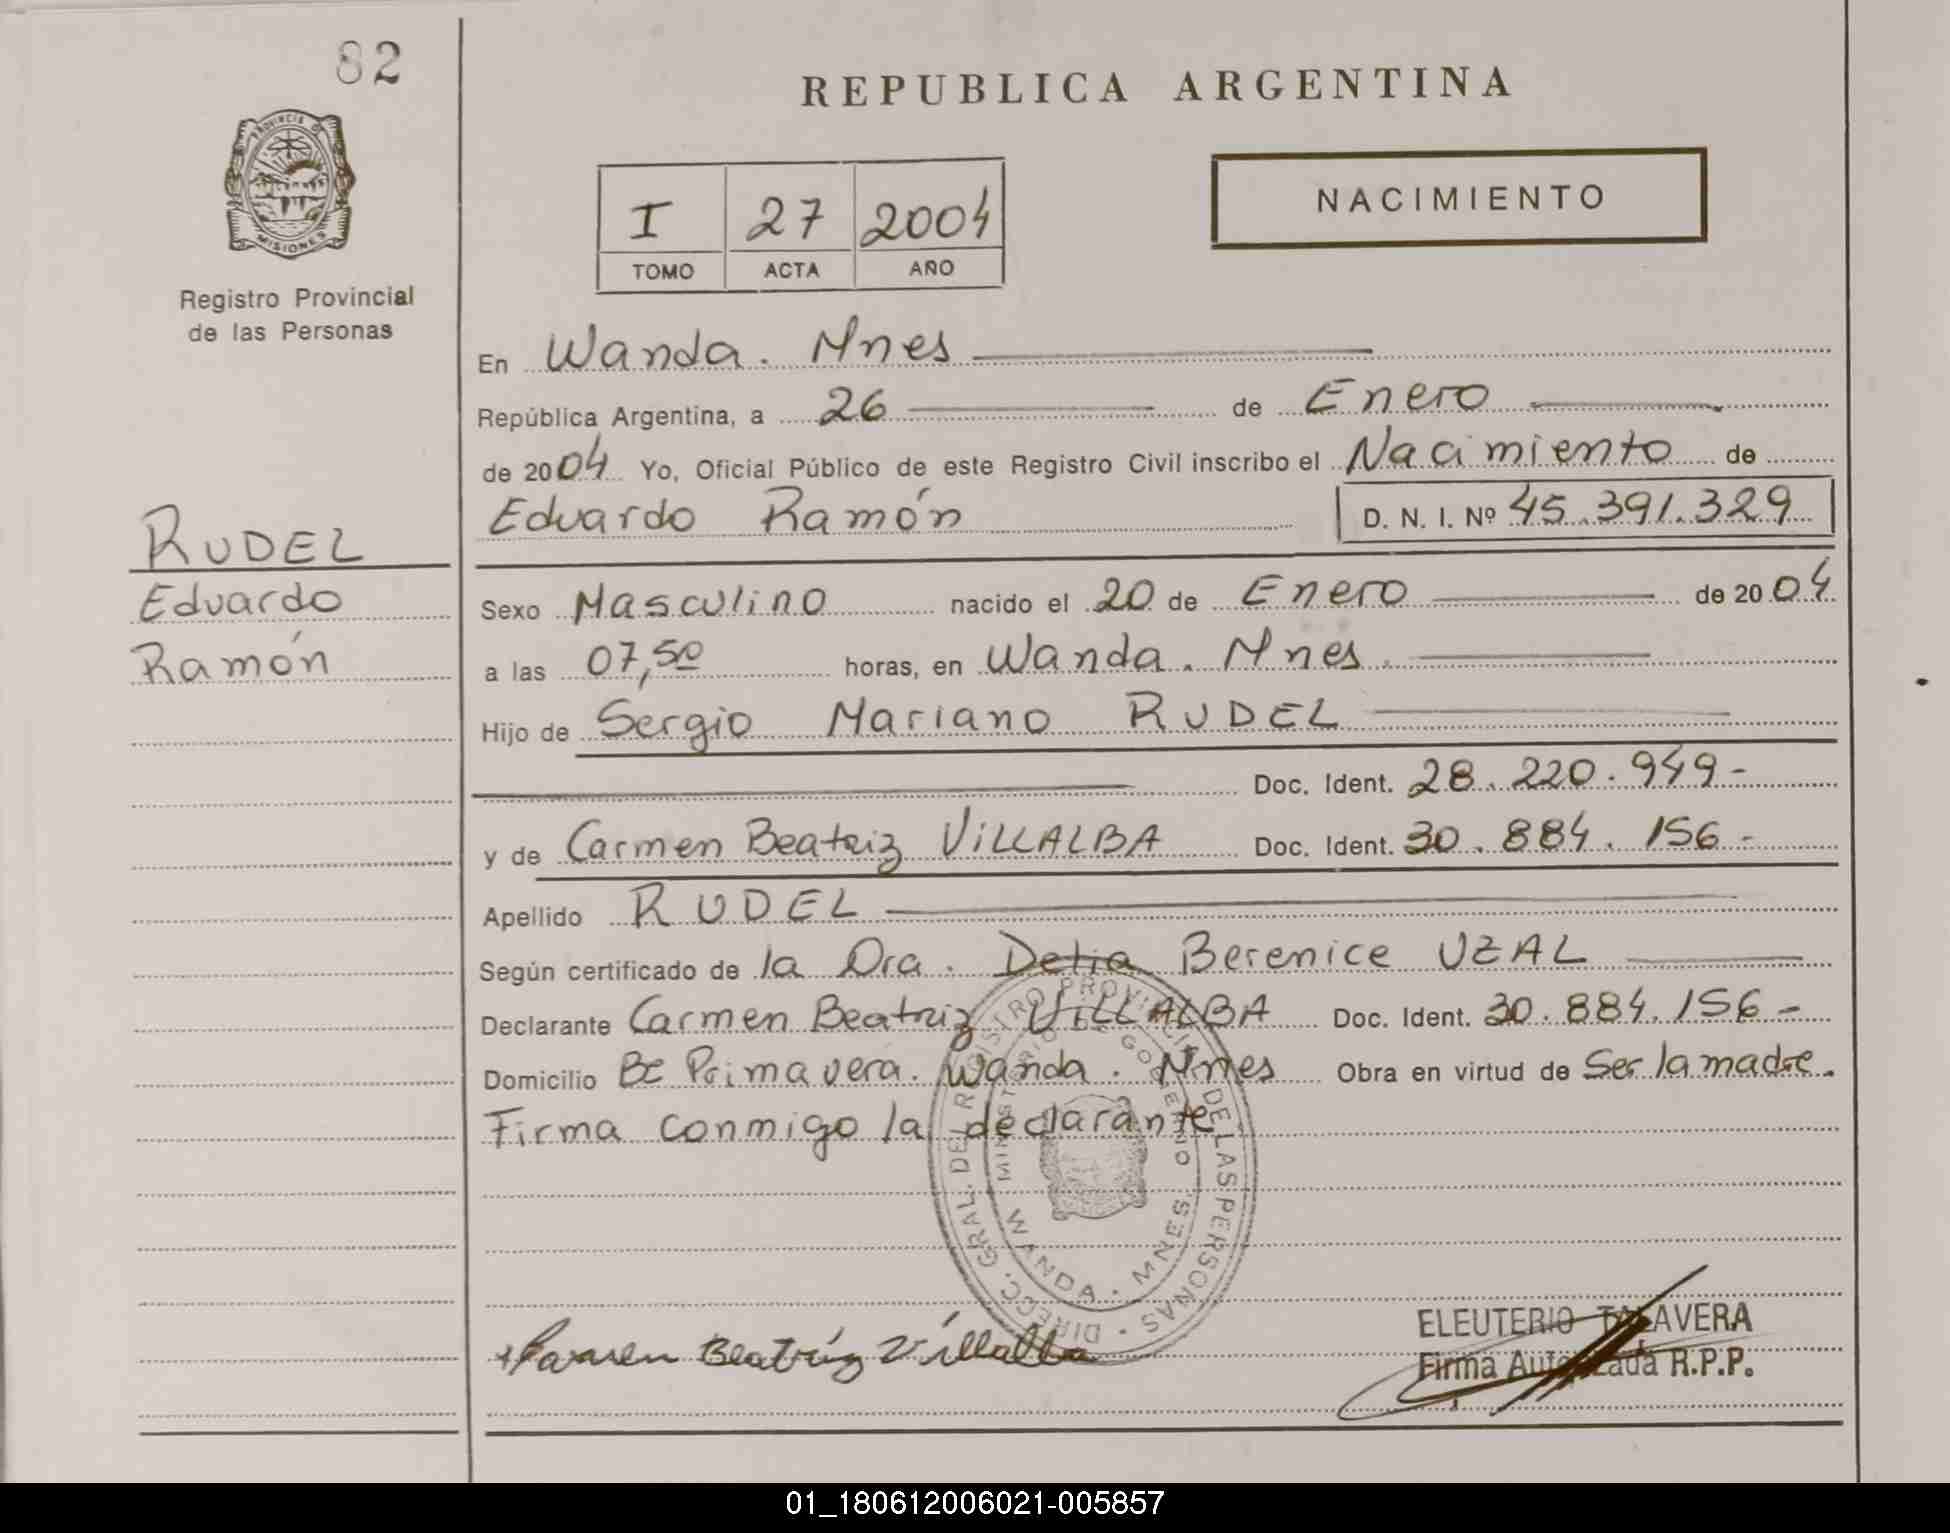 82
REPUBLICA ARGENTINA
PROVINCIA D
MISIONES
Registro Provincial
de las Personas
I 27 2004
TOMO ACTA AÑO
NACIMIENTO
En Wanda. Mnes
República Argentina, a 26 de Enero
de 2004 Yo, Oficial Público de este Registro Civil inscribo el Nacimiento de
Eduardo Ramón D. N. I. Nº 45.391.329
RUDEL
Eduardo
Ramón
Sexo Masculino nacido el 20 de Enero de 2004
a las 07,50 horas, en Wanda. Mnes.
Hijo de Sergio Mariano RUDEL
Doc. Ident. 28.220.949-
y de Carmen Beatriz VILLALBA Doc. Ident. 30.884.156-
Apellido RUDEL
Según certificado de la Dra. Delia Berenice UZAL
Declarante Carmen Beatriz VILLALBA Doc. Ident. 30.884.156-
Domicilio Bº Primavera. Wanda. Mnes Obra en virtud de Ser la madre.
Firma conmigo la declarante
DIRECC. GRAL. DEL REGISTRO PROVINCIAL DE LAS PERSONAS
MINISTERIO DE GOBIERNO
WANDA - MNES.
Carmen Beatriz Villalba
ELEUTERIO TALAVERA
Firma Autorizada R.P.P.
01_180612006021-005857